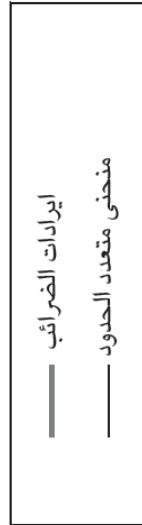 ايرادات الضرائب
منحنى متعدد الحدود